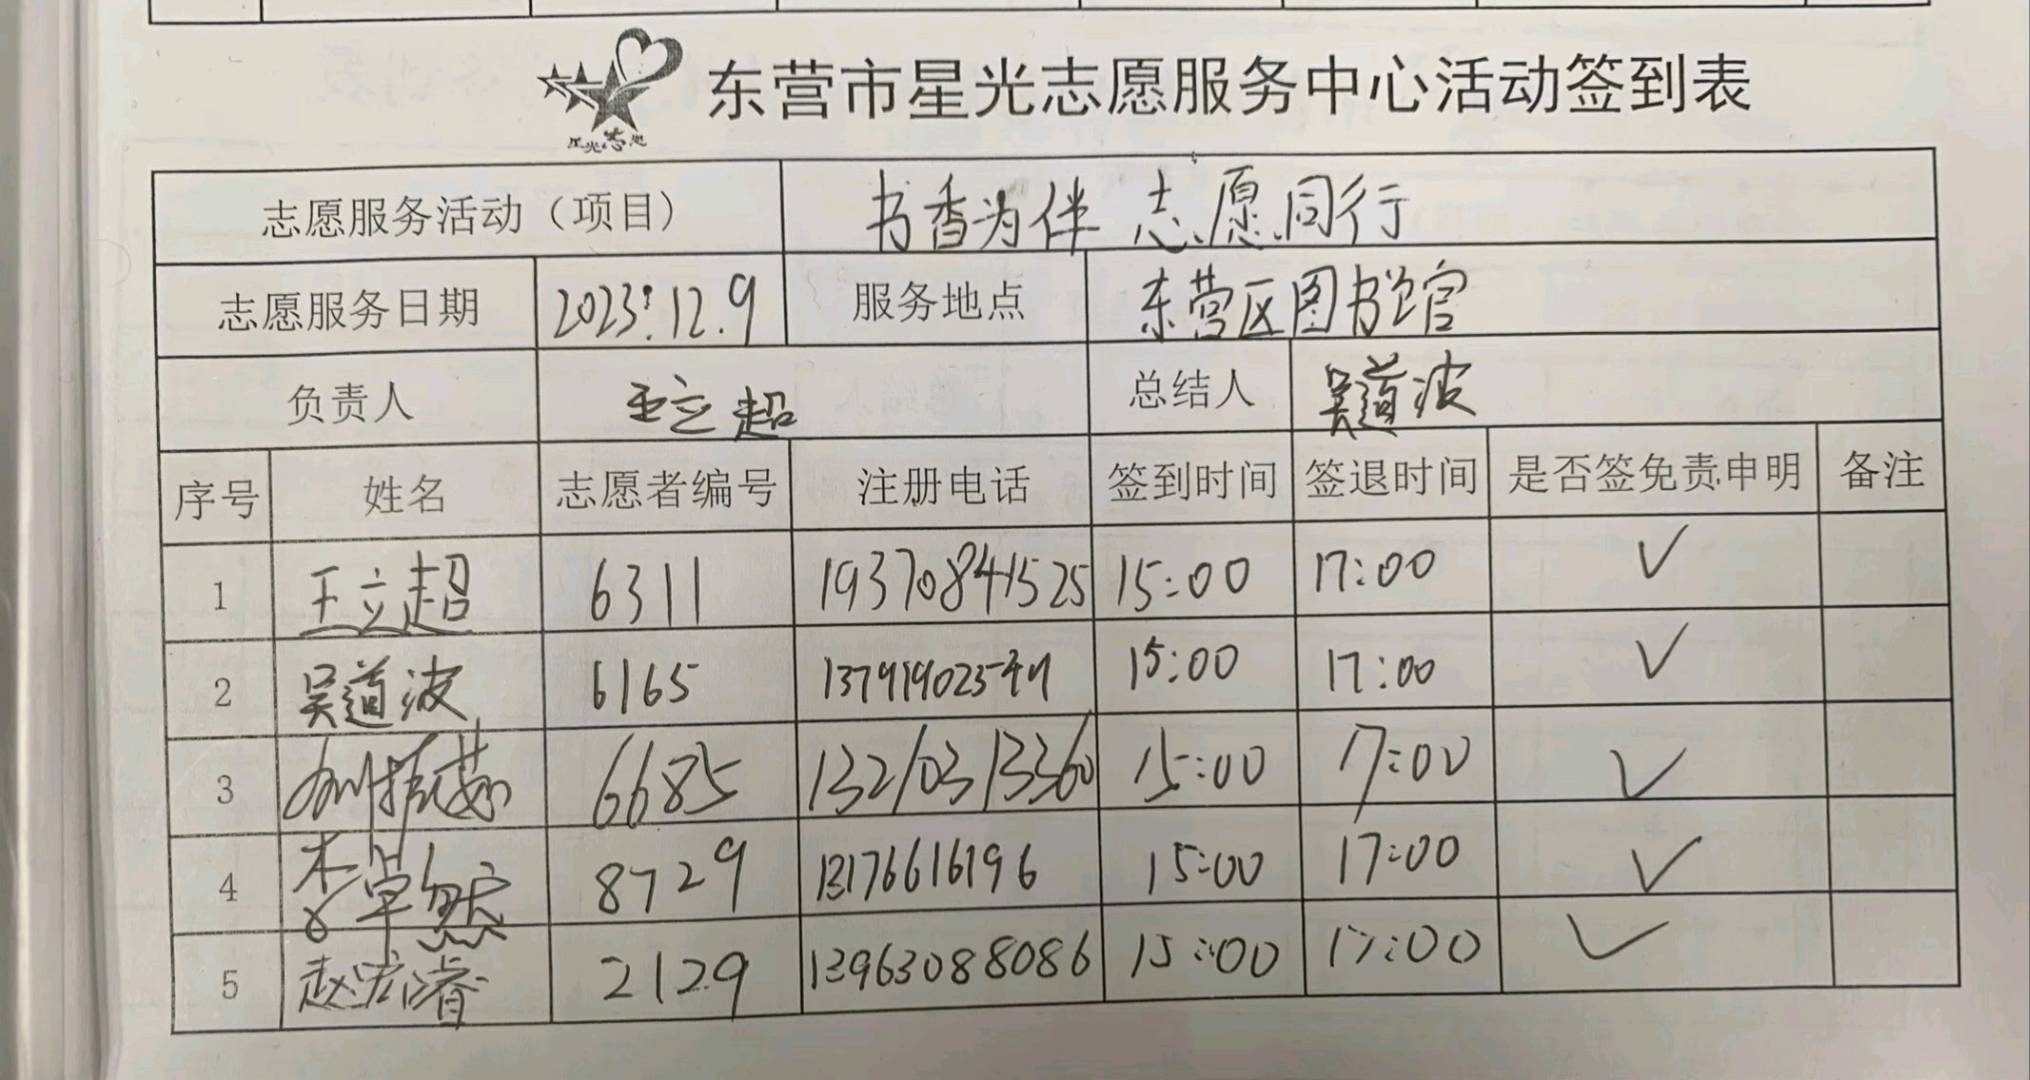 星光志愿
东营市星光志愿服务中心活动签到表
志愿服务活动（项目） 书香为伴 志愿同行
志愿服务日期 2023.12.9 服务地点 东营区图书馆
负责人 王立超 总结人 吴道波
序号 姓名 志愿者编号 注册电话 签到时间 签退时间 是否签免责申明 备注
1 王立超 6311 19370841525 15:00 17:00 ✓
2 吴道波 6165 15:00 17:00 ✓
3 6685 13210313360 15:00 17:00 ✓
4 李卓然 8729 13176616196 15:00 17:00 ✓
5 赵宏睿 2129 13963088086 15:00 17:00 ✓